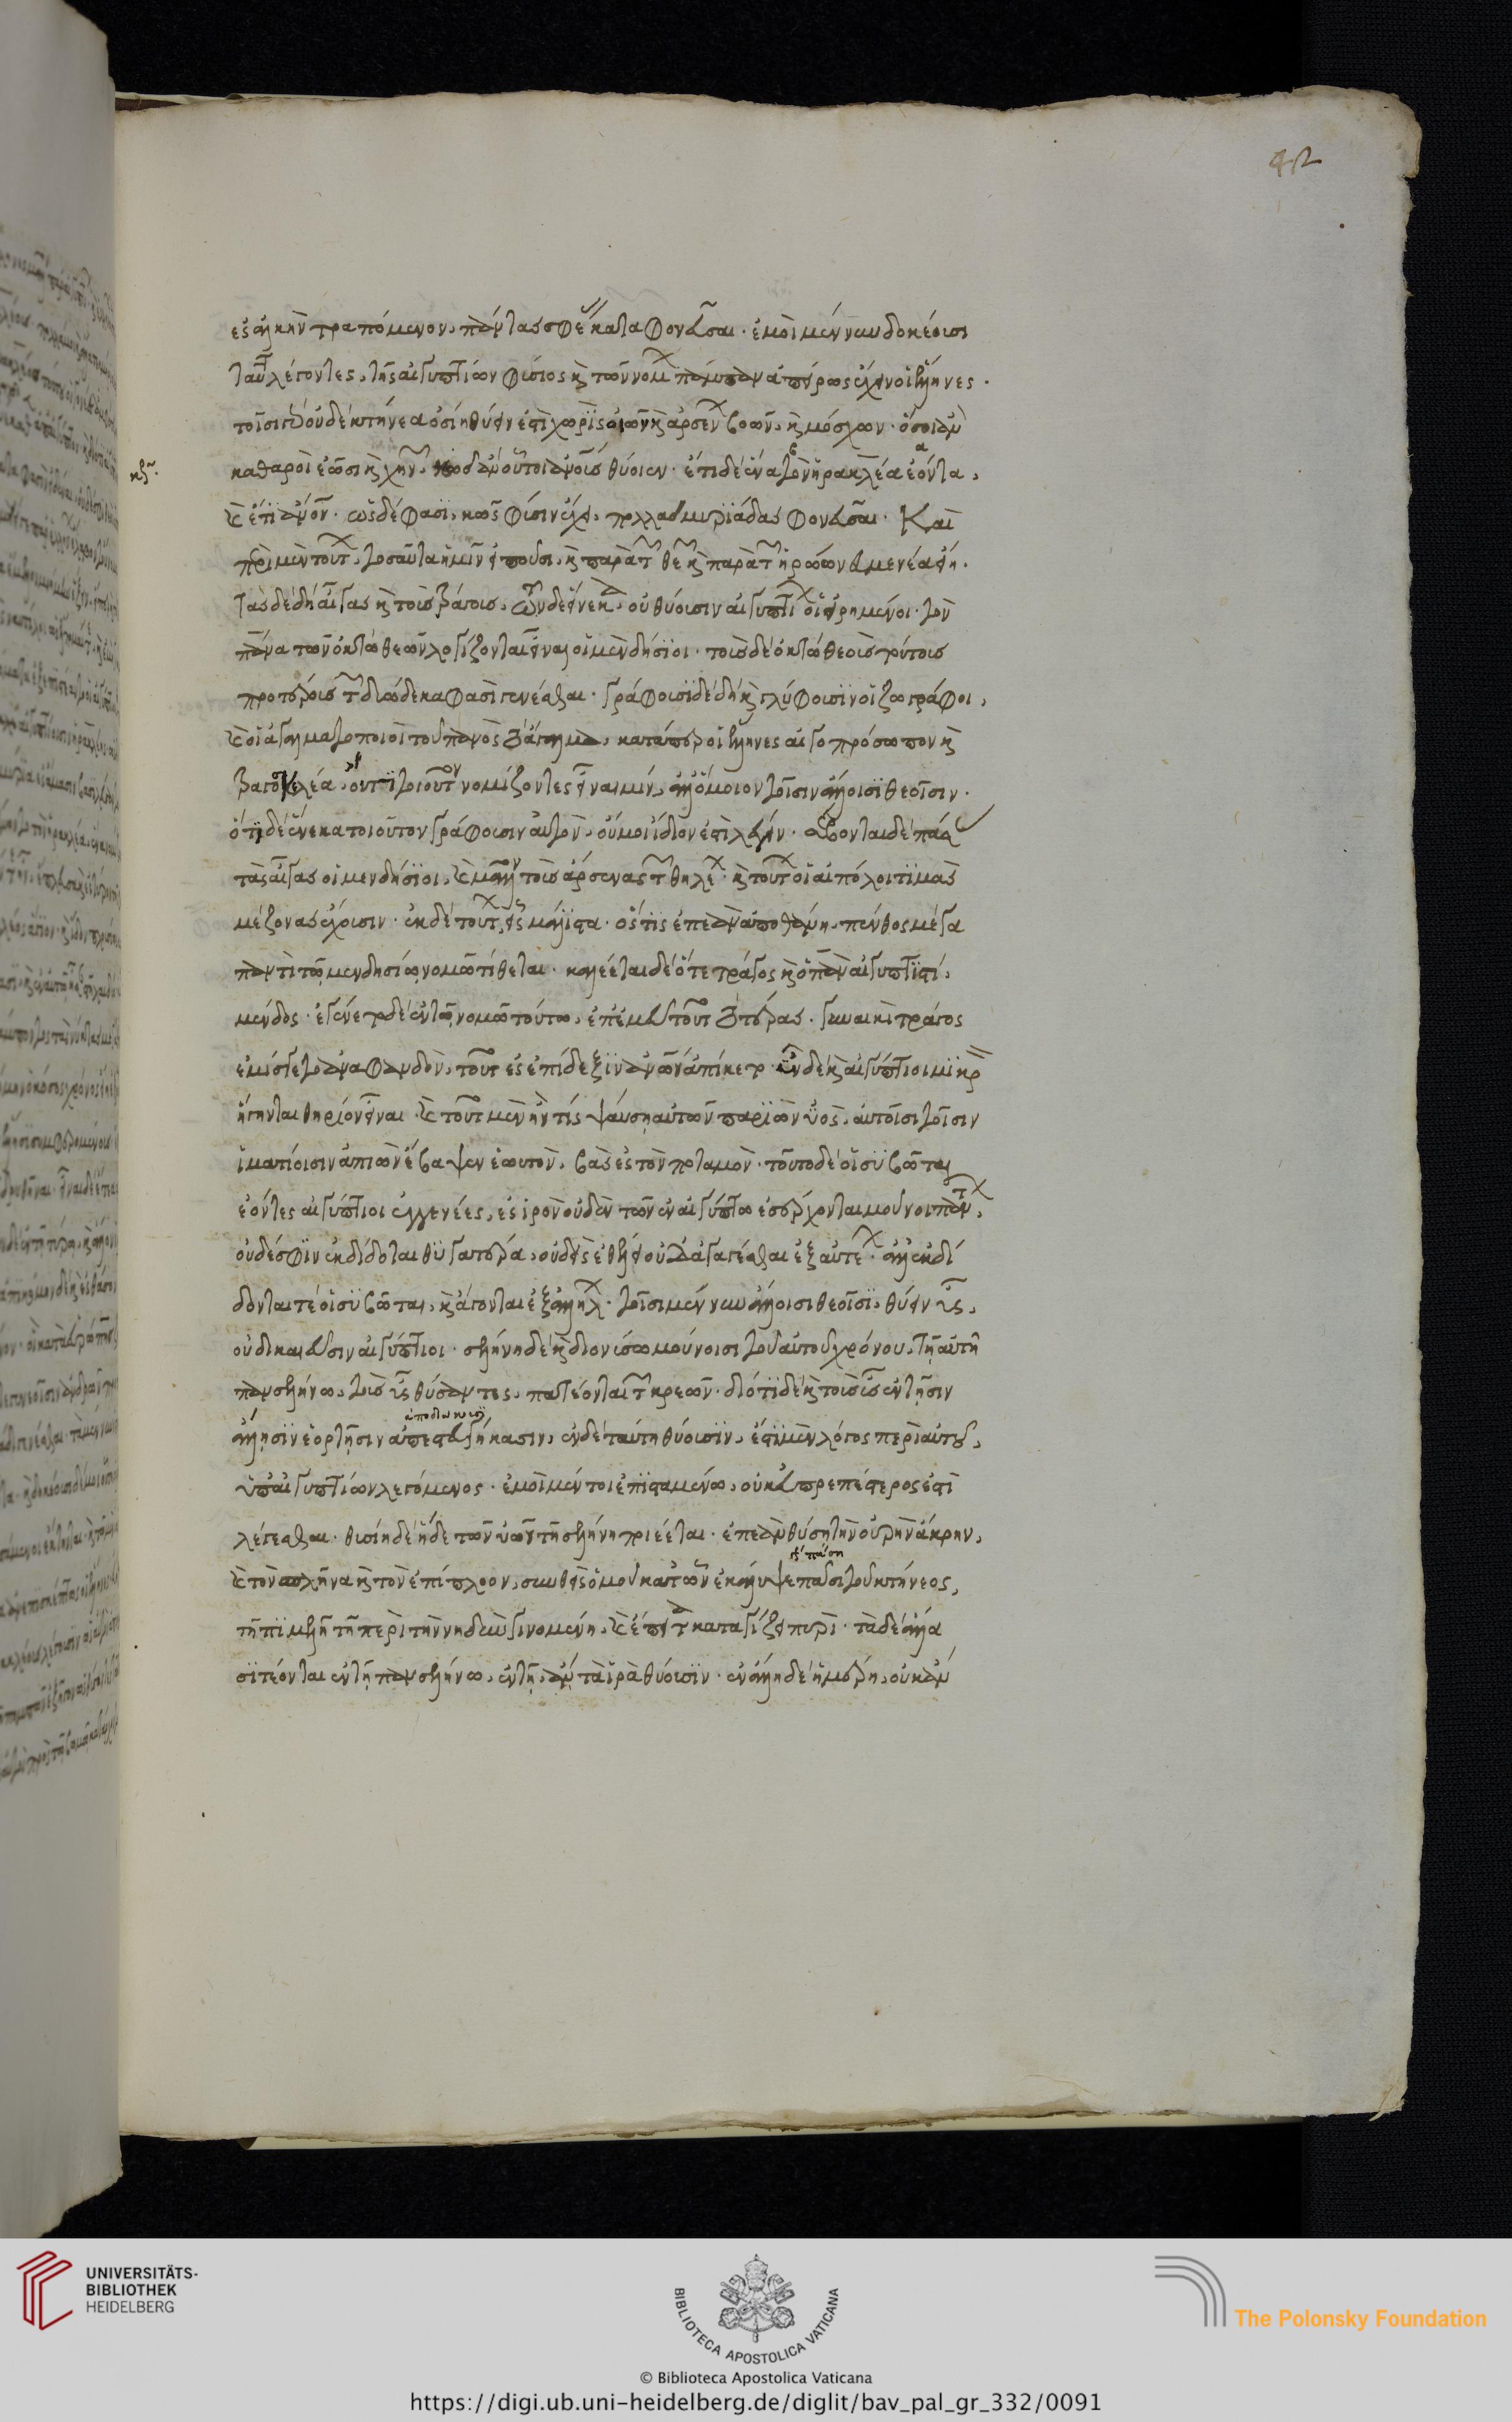 ἐς ἀλκὴν τραπόμενον, πάντας σφέας καταφονεῦσαι. ἐμοὶ μέν νυν δοκέουσι
ταῦτα λέγοντες, τῆς αἰγυπτίων φύσιος καὶ τῶν νόμων πάμπαν ἀπείρως ἔχειν οἱ ἕλληνες.
τοῖσι γὰρ οὐδὲ κτήνεα ὁσίη θύειν ἐστὶ χωρὶς ὀίων καὶ ἀρσένων βοῶν, καὶ μόσχων. ὅσοι ἂν
κζ. καθαροὶ ἔωσι καὶ χηνῶν. κῶς ἂν οὗτοι ἀνθρώπους θύοιεν. ἔτι δὲ ἕνα τὸν ἡρακλέα ἐόντα,
καὶ ἔτι ἄνθρωπον. ὡς δέ φασι, κῶς φύσιν ἔχει, πολλὰς μυριάδας φονεῦσαι. Καὶ
περὶ μὲν τούτων, τοσαῦτα ἡμῖν εἰποῦσι, καὶ παρὰ τῶν θεῶν καὶ παρὰ τῶν ἡρώων εὐμενέα εἴη.
Τὰς δὲ δὴ αἶγας καὶ τοὺς τράγους, τῶνδε εἵνεκα, οὐ θύουσιν αἰγυπτίων οἱ εἰρημένοι. τὸν
πᾶνα τῶν ὀκτὼ θεῶν λογίζονται εἶναι οἱ μενδήσιοι. τοὺς δὲ ὀκτὼ θεοὺς τούτους
προτέρους τῶν δυώδεκα φασὶ γενέσθαι. γράφουσι δὲ δὴ καὶ γλύφουσιν οἱ ζωγράφοι,
καὶ οἱ ἀγαλματοποιοὶ τοῦ πανὸς τὸ ἄγαλμα, κατάπερ οἱ ἕλληνες αἰγοπρόσωπον καὶ
τραγοσκελέα, οὔτι τοιοῦτον νομίζοντες εἶναί μιν, ἀλλ' ὅμοιον τοῖσιν ἄλλοισι θεοῖσιν.
ὅτι δὲ εἵνεκα τοιοῦτον γράφουσιν αὐτὸν, οὔ μοι ἥδιον ἐστὶ λέγειν. σέβονται δὲ πάσας
τὰς αἶγας οἱ μενδήσιοι, καὶ μᾶλλον τοὺς ἄρσενας τῶν θηλέων. καὶ τούτων οἱ αἰπόλοι τιμὰς
μέζονας ἔχουσιν. ἐκ δὲ τούτων, εἷς μάλιστα. ὅστις ἐπεὰν ἀποθάνῃ, πένθος μέγα
παντὶ τῷ μενδησίῳ νομῷ τίθεται. καλέεται δὲ ὅτε τράγος καὶ ὁ πὰν αἰγυπτιστί,
μένδος. ἐγένετο δὲ ἐν τῷ νομῷ τούτω, ἐπ' ἐμεῦ τοῦτο τὸ τέρας. γυναικὶ τράγος
ἐμίσγετο ἀναφανδὸν, τοῦτο ἐς ἐπίδεξιν ἀνθρώπων ἀπίκετο. ὗν δὲ καὶ αἰγύπτιοι μιαρὸν
ἥγηνται θηρίον εἶναι. καὶ τοῦτο μὲν ἤν τις ψαύσῃ αὐτῶν παριὼν ὑὸς, αὐτοῖσι τοῖσιν
ἱματίοισιν ἀπιὼν ἔβαψεν ἑωυτὸν, βὰς ἐς τὸν ποταμὸν. τοῦτο δὲ οἱ συβῶται
ἐόντες αἰγύπτιοι ἐγγενέες, ἐς ἱρὸν οὐδὲν τῶν ἐν αἰγύπτω ἐσέρχονται μοῦνοι πάντων,
οὐδέ σφιν ἐκδίδοται θυγατέρα, οὐδεὶς ἐθέλει οὐδ' ἄγαγέσθαι ἐξ αὐτέων. ἀλλ' ἐκδί
δονται τὲ οἱ συβῶται, καὶ ἄγονται ἐξ ἀλλήλων. τοῖσι μέν νυν ἄλλοισι θεοῖσι, θύειν ὗς,
οὐ δικαιεῦσιν αἰγύπτιοι. σελήνη δὲ καὶ διονύσω μούνοισι τοῦ αὐτοῦ χρόνου, τῇ αὐτῇ
πανσελήνω, τοὺς ὗς θύσαντες, πατέονται τῶν κρεῶν. διότι δὲ καὶ τοὺς ὗς ἐν τῇσιν
ἄλλῃσιν ἑορτῇσιν ἀπεστυγήκασιν, ἐν δὲ ταύτη θύουσιν, ἔστι μὲν λόγος περὶ αὐτοῦ,
ὑπ' αἰγυπτίων λεγόμενος. ἐμοὶ μέντοι ἐπισταμένω, οὐκ εὐπρεπέστερος ἐστὶ
λέγεσθαι. θυσίη δὲ ἥδε τῶν ὑῶν τῇ σελήνη ποιέεται. ἐπεὰν θύσῃ τὴν οὐρὴν ἄκρην,
καὶ τὸν σπλῆνα καὶ τὸν ἐπίπλοον, συνθεὶς ὁμοῦ κατ' ὦν ἐκάλυψε πάσῃ τοῦ κτήνεος,
τῇ πιμελῇ τῇ περὶ τὴν νηδὺν γινομένη, καὶ ἔπειτα καταγίζει πυρὶ. τὰ δὲ ἄλλα
σιτέονται ἐν τῇ πανσελήνω, ἐν τῇ ἂν τὰ ἱρὰ θύουσιν. ἐν ἄλλη δὲ ἡμέρη, οὐκ ἂν
UNIVERSITÄTS-
BIBLIOTHEK
HEIDELBERG
BIBLIOTECA APOSTOLICA VATICANA
The Polonsky Foundation
© Biblioteca Apostolica Vaticana
https://digi.ub.uni-heidelberg.de/diglit/bav_pal_gr_332/0091